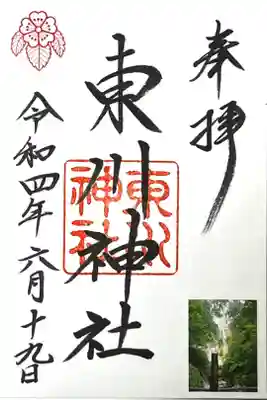 奉拝
東川神社
東川
神社
令和四年六月十九日